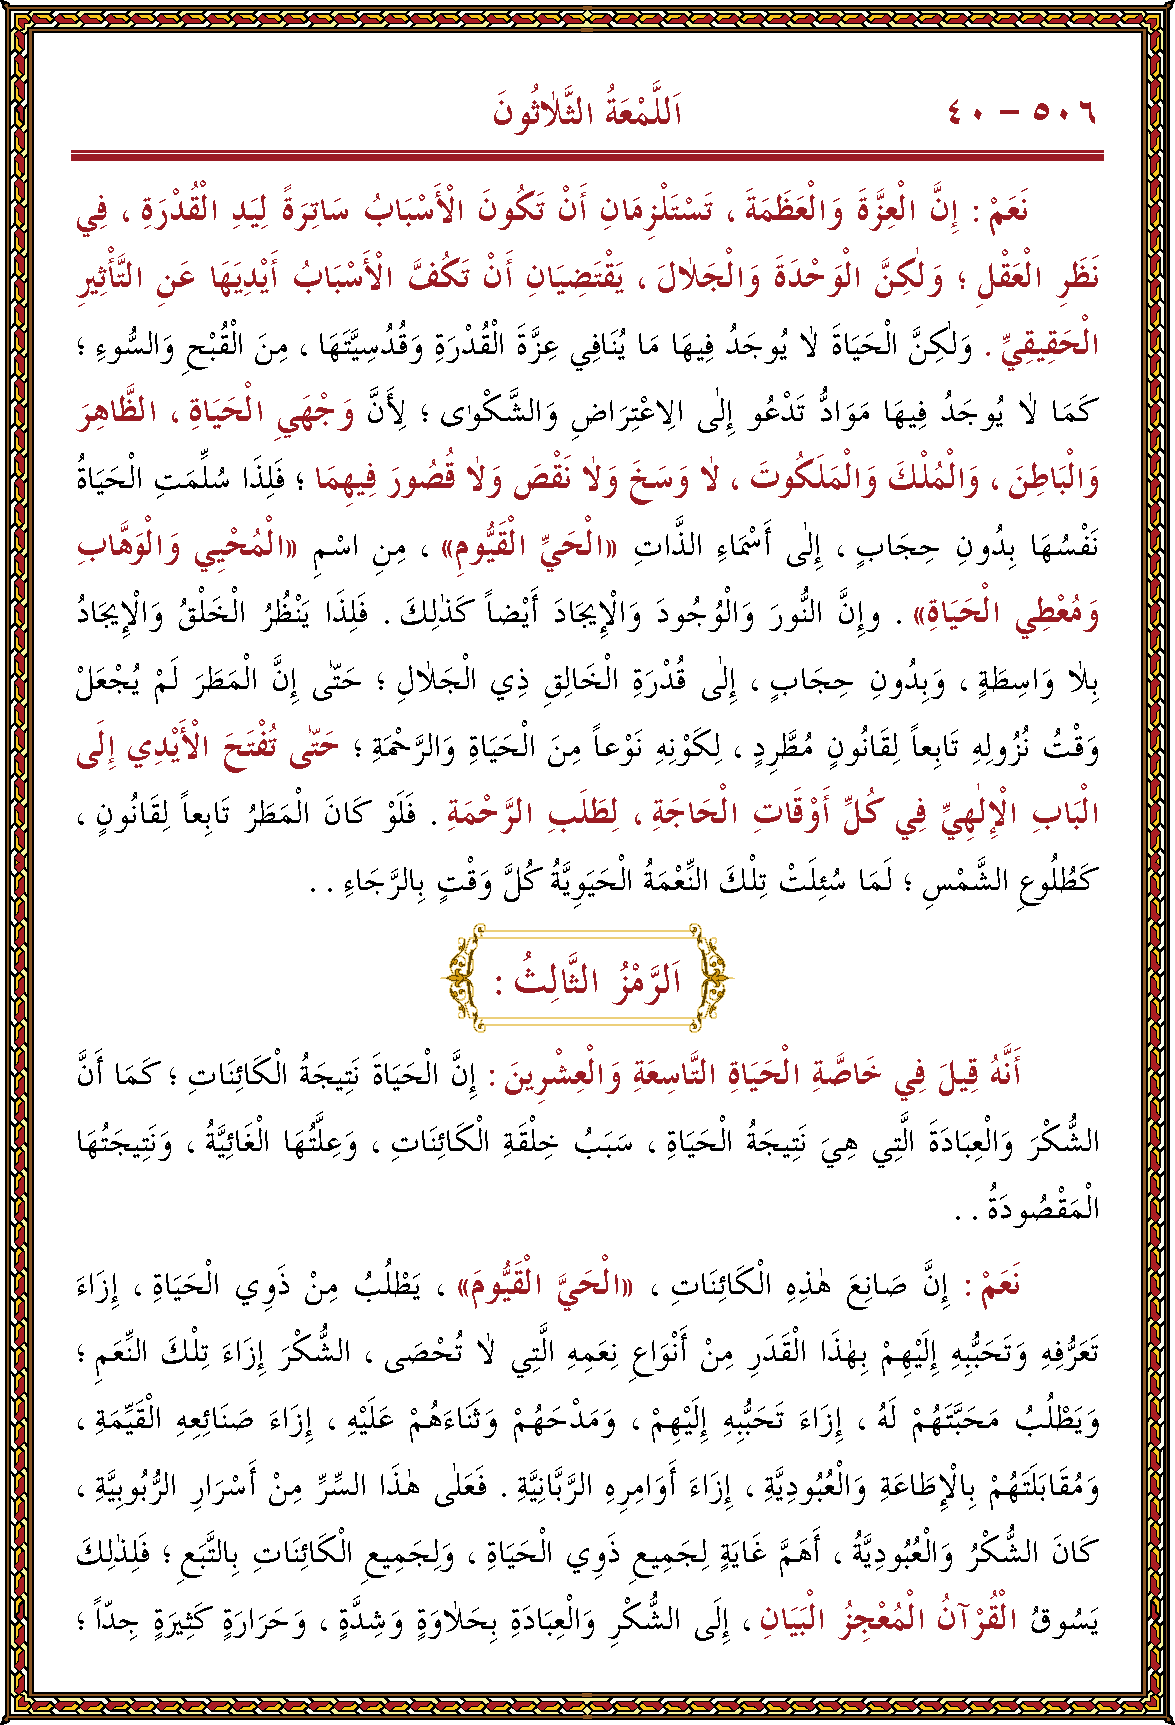 ٥٠٦ – ٤٠
اَللَّمْعَةُ الثَّلَاثُونَ
نَعَمْ : إِنَّ الْعِزَّةَ وَالْعَظَمَةَ ، تَسْتَلْزِمَانِ أَنْ تَكُونَ الْأَسْبَابُ سَاتِرَةً لِيَدِ الْقُدْرَةِ ، فِي
نَظَرِ الْعَقْلِ ؛ وَلٰكِنَّ الْوَحْدَةَ وَالْجَلَالَ ، يَقْتَضِيَانِ أَنْ تَكُفَّ الْأَسْبَابُ أَيْدِيَهَا عَنِ التَّأْثِيرِ
الْحَقِيقِيِّ . وَلٰكِنَّ الْحَيَاةَ لَا يُوجَدُ فِيهَا مَا يُنَافِي عِزَّةَ الْقُدْرَةِ وَقُدُسِيَّتَهَا ، مِنَ الْقُبْحِ وَالسُّوءِ ؛
كَمَا لَا يُوجَدُ فِيهَا مَوَادُّ تَدْعُو إِلَى الِاعْتِرَاضِ وَالشَّكْوٰى ؛ لِأَنَّ وَجْهَيِ الْحَيَاةِ ، الظَّاهِرَ
وَالْبَاطِنَ ، وَالْمُلْكَ وَالْمَلَكُوتَ ، لَا وَسَخَ وَلَا نَقْصَ وَلَا قُصُورَ فِيهِمَا ؛ فَلِذَا سُلِّمَتِ الْحَيَاةُ
نَفْسُهَا بِدُونِ حِجَابٍ ، إِلَى أَسْمَاءِ الذَّاتِ «الْحَيِّ الْقَيُّومِ» ، مِنِ اسْمِ «الْمُحْيِي وَالْوَهَّابِ
وَمُعْطِي الْحَيَاةِ» . وإِنَّ النُّورَ وَالْوُجُودَ وَالْإِيجَادَ أَيْضاً كَذٰلِكَ . فَلِذَا يُنْظَرُ الْخَلْقُ وَالْإِيجَادُ
بِلَا وَاسِطَةٍ ، وَبِدُونِ حِجَابٍ ، إِلَى قُدْرَةِ الْخَالِقِ ذِي الْجَلَالِ ؛ حَتّٰى إِنَّ الْمَطَرَ لَمْ يُجْعَلْ
وَقْتُ نُزُولِهِ تَابِعاً لِقَانُونٍ مُطَّرِدٍ ، لِكَوْنِهِ نَوْعاً مِنَ الْحَيَاةِ وَالرَّحْمَةِ ؛ حَتّٰى تُفْتَحَ الْأَيْدِي إِلَى
الْبَابِ الْإِلٰهِيِّ فِي كُلِّ أَوْقَاتِ الْحَاجَةِ ، لِطَلَبِ الرَّحْمَةِ . فَلَوْ كَانَ الْمَطَرُ تَابِعاً لِقَانُونٍ ،
كَطُلُوعِ الشَّمْسِ ؛ لَمَا سُئِلَتْ تِلْكَ النِّعْمَةُ الْحَيَوِيَّةُ كُلَّ وَقْتٍ بِالرَّجَاءِ . .
اَلرَّمْزُ الثَّالِثُ :
أَنَّهُ قِيلَ فِي خَاصَّةِ الْحَيَاةِ التَّاسِعَةِ وَالْعِشْرِينَ : إِنَّ الْحَيَاةَ نَتِيجَةُ الْكَائِنَاتِ ؛ كَمَا أَنَّ
الشُّكْرَ وَالْعِبَادَةَ الَّتِي هِيَ نَتِيجَةُ الْحَيَاةِ ، سَبَبُ خِلْقَةِ الْكَائِنَاتِ ، وَعِلَّتُهَا الْغَائِيَّةُ ، وَنَتِيجَتُهَا
الْمَقْصُودَةُ . .
نَعَمْ : إِنَّ صَانِعَ هٰذِهِ الْكَائِنَاتِ ، «الْحَيَّ الْقَيُّومَ» ، يَطْلُبُ مِنْ ذَوِي الْحَيَاةِ ، إِزَاءَ
تَعَرُّفِهِ وَتَحَبُّبِهِ إِلَيْهِمْ بِهٰذَا الْقَدَرِ مِنْ أَنْوَاعِ نِعَمِهِ الَّتِي لَا تُحْصَى ، الشُّكْرَ إِزَاءَ تِلْكَ النِّعَمِ ؛
وَيَطْلُبُ مَحَبَّتَهُمْ لَهُ ، إِزَاءَ تَحَبُّبِهِ إِلَيْهِمْ ، وَمَدْحَهُمْ وَثَنَاءَهُمْ عَلَيْهِ ، إِزَاءَ صَنَائِعِهِ الْقَيِّمَةِ ،
وَمُقَابَلَتَهُمْ بِالْإِطَاعَةِ وَالْعُبُودِيَّةِ ، إِزَاءَ أَوَامِرِهِ الرَّبَّانِيَّةِ . فَعَلٰى هٰذَا السِّرِّ مِنْ أَسْرَارِ الرُّبُوبِيَّةِ ،
كَانَ الشُّكْرُ وَالْعُبُودِيَّةُ ، أَهَمَّ غَايَةٍ لِجَمِيعِ ذَوِي الْحَيَاةِ ، وَلِجَمِيعِ الْكَائِنَاتِ بِالتَّبَعِ ؛ فَلِذٰلِكَ
يَسُوقُ الْقُرْآنُ الْمُعْجِزُ الْبَيَانِ ، إِلَى الشُّكْرِ وَالْعِبَادَةِ بِحَلَاوَةٍ وَشِدَّةٍ ، وَحَرَارَةٍ كَثِيرَةٍ جِدّاً ؛